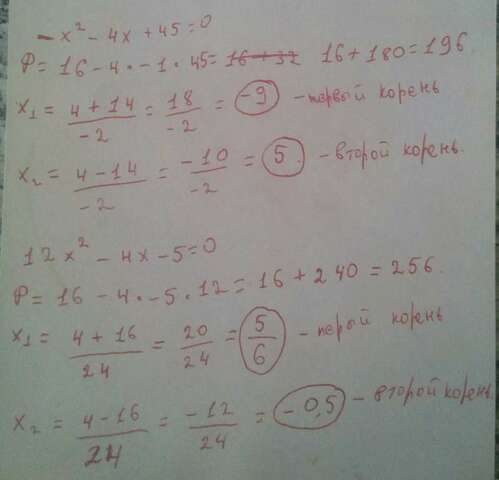 -x² - 4x + 45 = 0
D = 16 - 4 · -1 · 45 = ~~16 + 32~~ 16 + 180 = 196.
x₁ = (4 + 14)/-2 = 18/-2 = -9 - первый корень
x₂ = (4 - 14)/-2 = -10/-2 = 5. - второй корень.
12x² - 4x - 5 = 0
D = 16 - 4 · -5 · 12 = 16 + 240 = 256.
x₁ = (4 + 16)/24 = 20/24 = 5/6 - перый корень
x₂ = (4 - 16)/24 = -12/24 = -0,5 - второй корень.